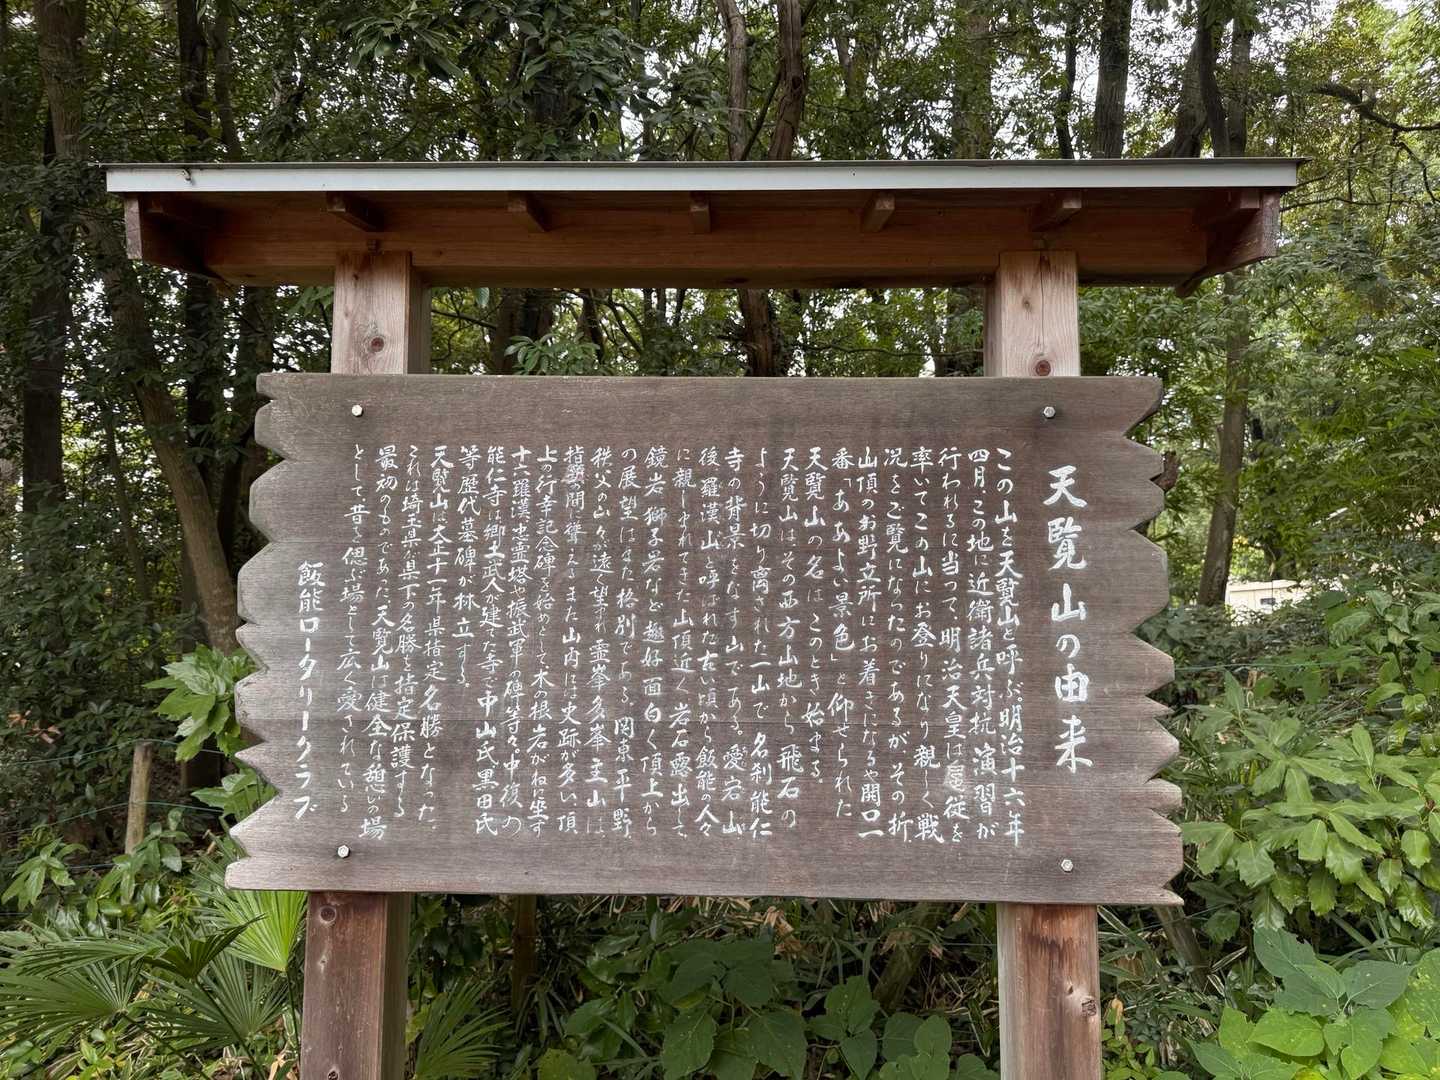 天覧山の由来
この山を天覧山と呼ぶ明治十六年
四月、この地に近衛諸兵対抗演習が
行われるに当って、明治天皇は扈従を
率いてこの山にお登りになり親しく戦
況をご覧になったのであるが、その折、
山頂のお野立所にお着きになるや開口一
番「ああよい景色」と仰せられた
天覧山の名はこのとき始まる。
天覧山はその西方山地から飛石の
ように切り離された一山で名刹能仁
寺の背景をなす山である。愛宕山
後羅漢山と呼ばれた古い頃から飯能の人々
に親しまれてきた山頂近く岩石露出して
鏡岩獅子岩など趣好面白く頂上から
の展望はまた格別である。関東平野、
秩父の山々が遠く望まれ霊峯多峯主山は
指顧の間に聳えるまた山内には史跡が多い、頂
上の行幸記念碑を始めとして木の根岩がねに坐す
十六羅漢忠霊塔や振武軍の碑等々中後の
能仁寺は郷土武人が建てた寺で中山氏黒田氏
等歴代墓碑が林立する。
天覧山は大正十一年県指定名勝となった。
これは埼玉県が県下の名勝を指定保護する
最初のものであった、天覧山は健全な憩いの場
として昔を偲ぶ場として広く愛されている
飯能ロータリークラブ